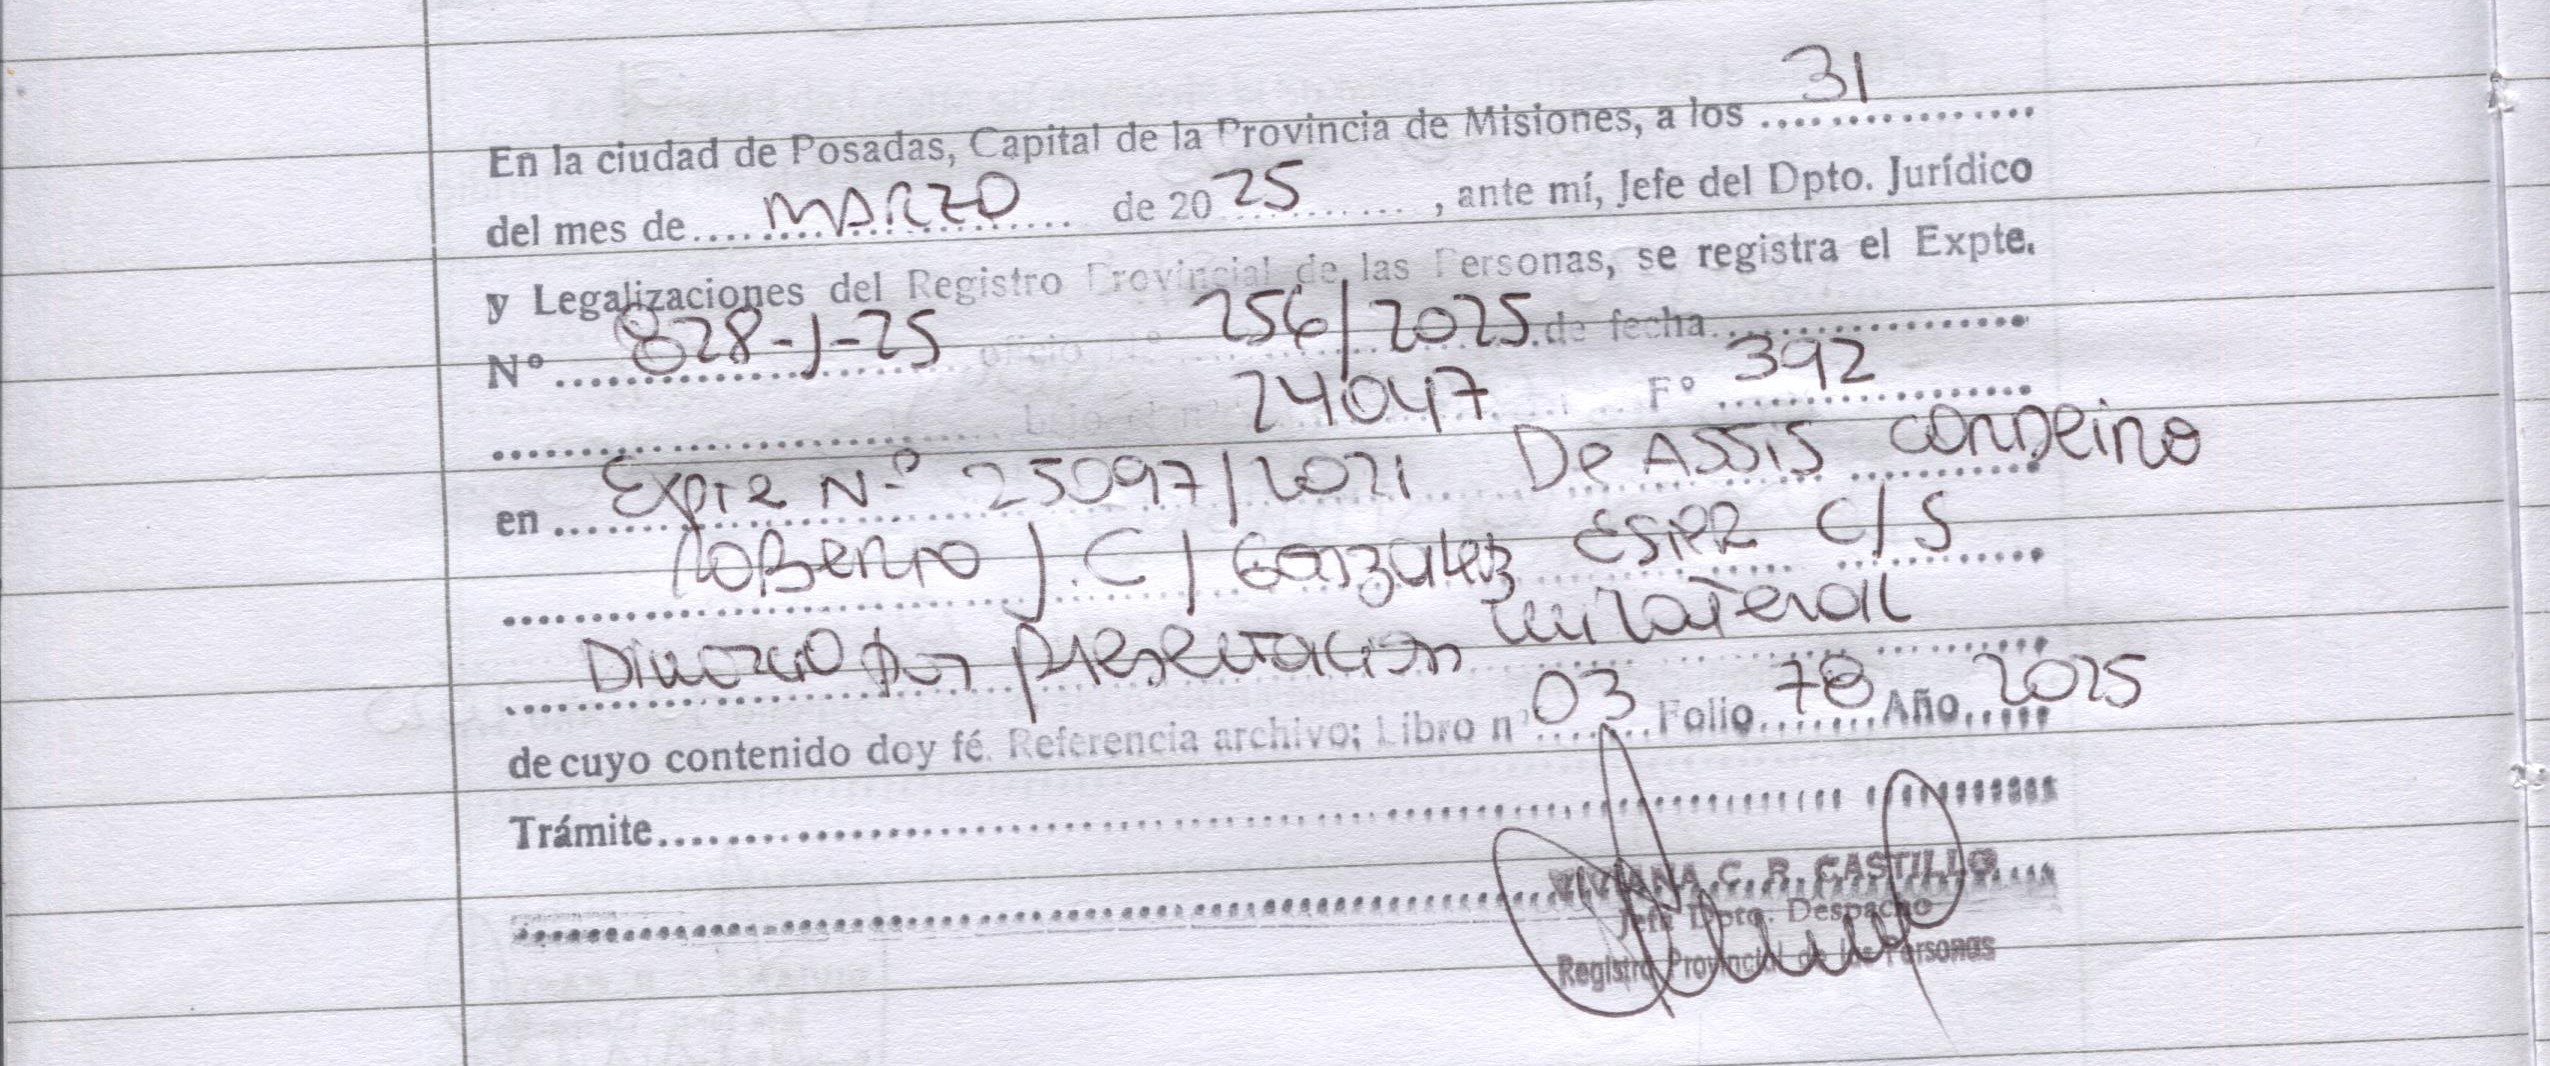 En la ciudad de Posadas, Capital de la Provincia de Misiones, a los 31
del mes de MARZO de 2025, ante mí, Jefe del Dpto. Jurídico
y Legalizaciones del Registro Provincial de las Personas, se registra el Expte.
Nº 828-J-25 oficio nº 256/2025 de fecha
bajo el nº 24047 Fº 392
en Expte Nº 25097/2021 De Assis Cordeiro
Roberto J. C/ Gonzalez Ester C/S
Divorcio por presentacion unilateral
de cuyo contenido doy fé. Referencia archivo; Libro nº 03 Folio 78 Año 2025
Trámite
VIVIANA C. R. CASTILLO
Jefa Dpto. Despacho
Registro Provincial de las Personas